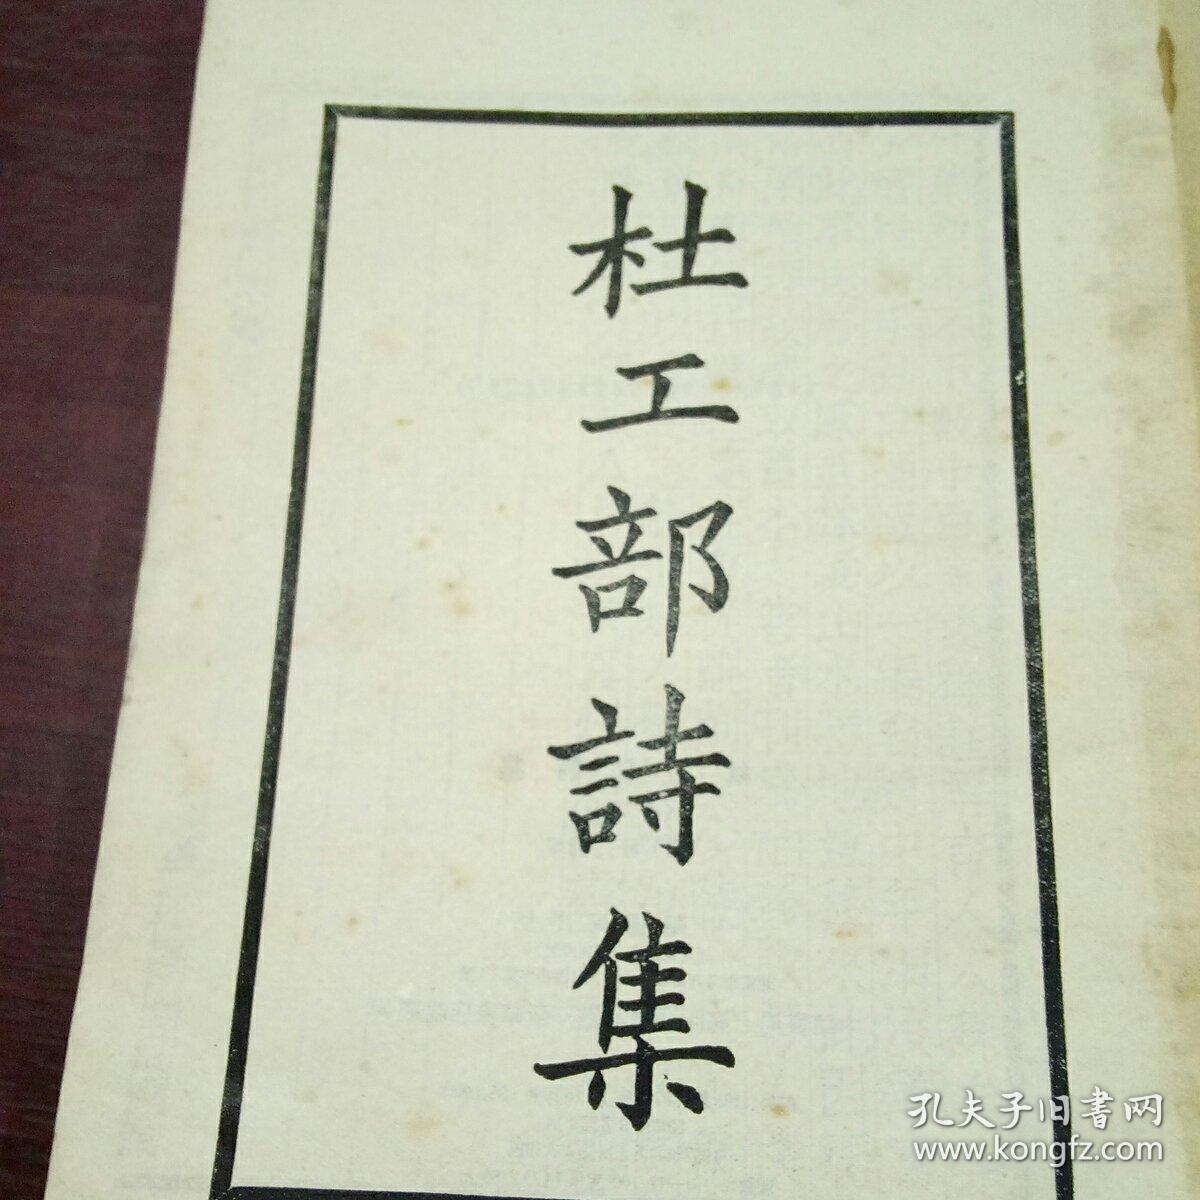 杜工部詩集
孔夫子旧書网
www.kongfz.com